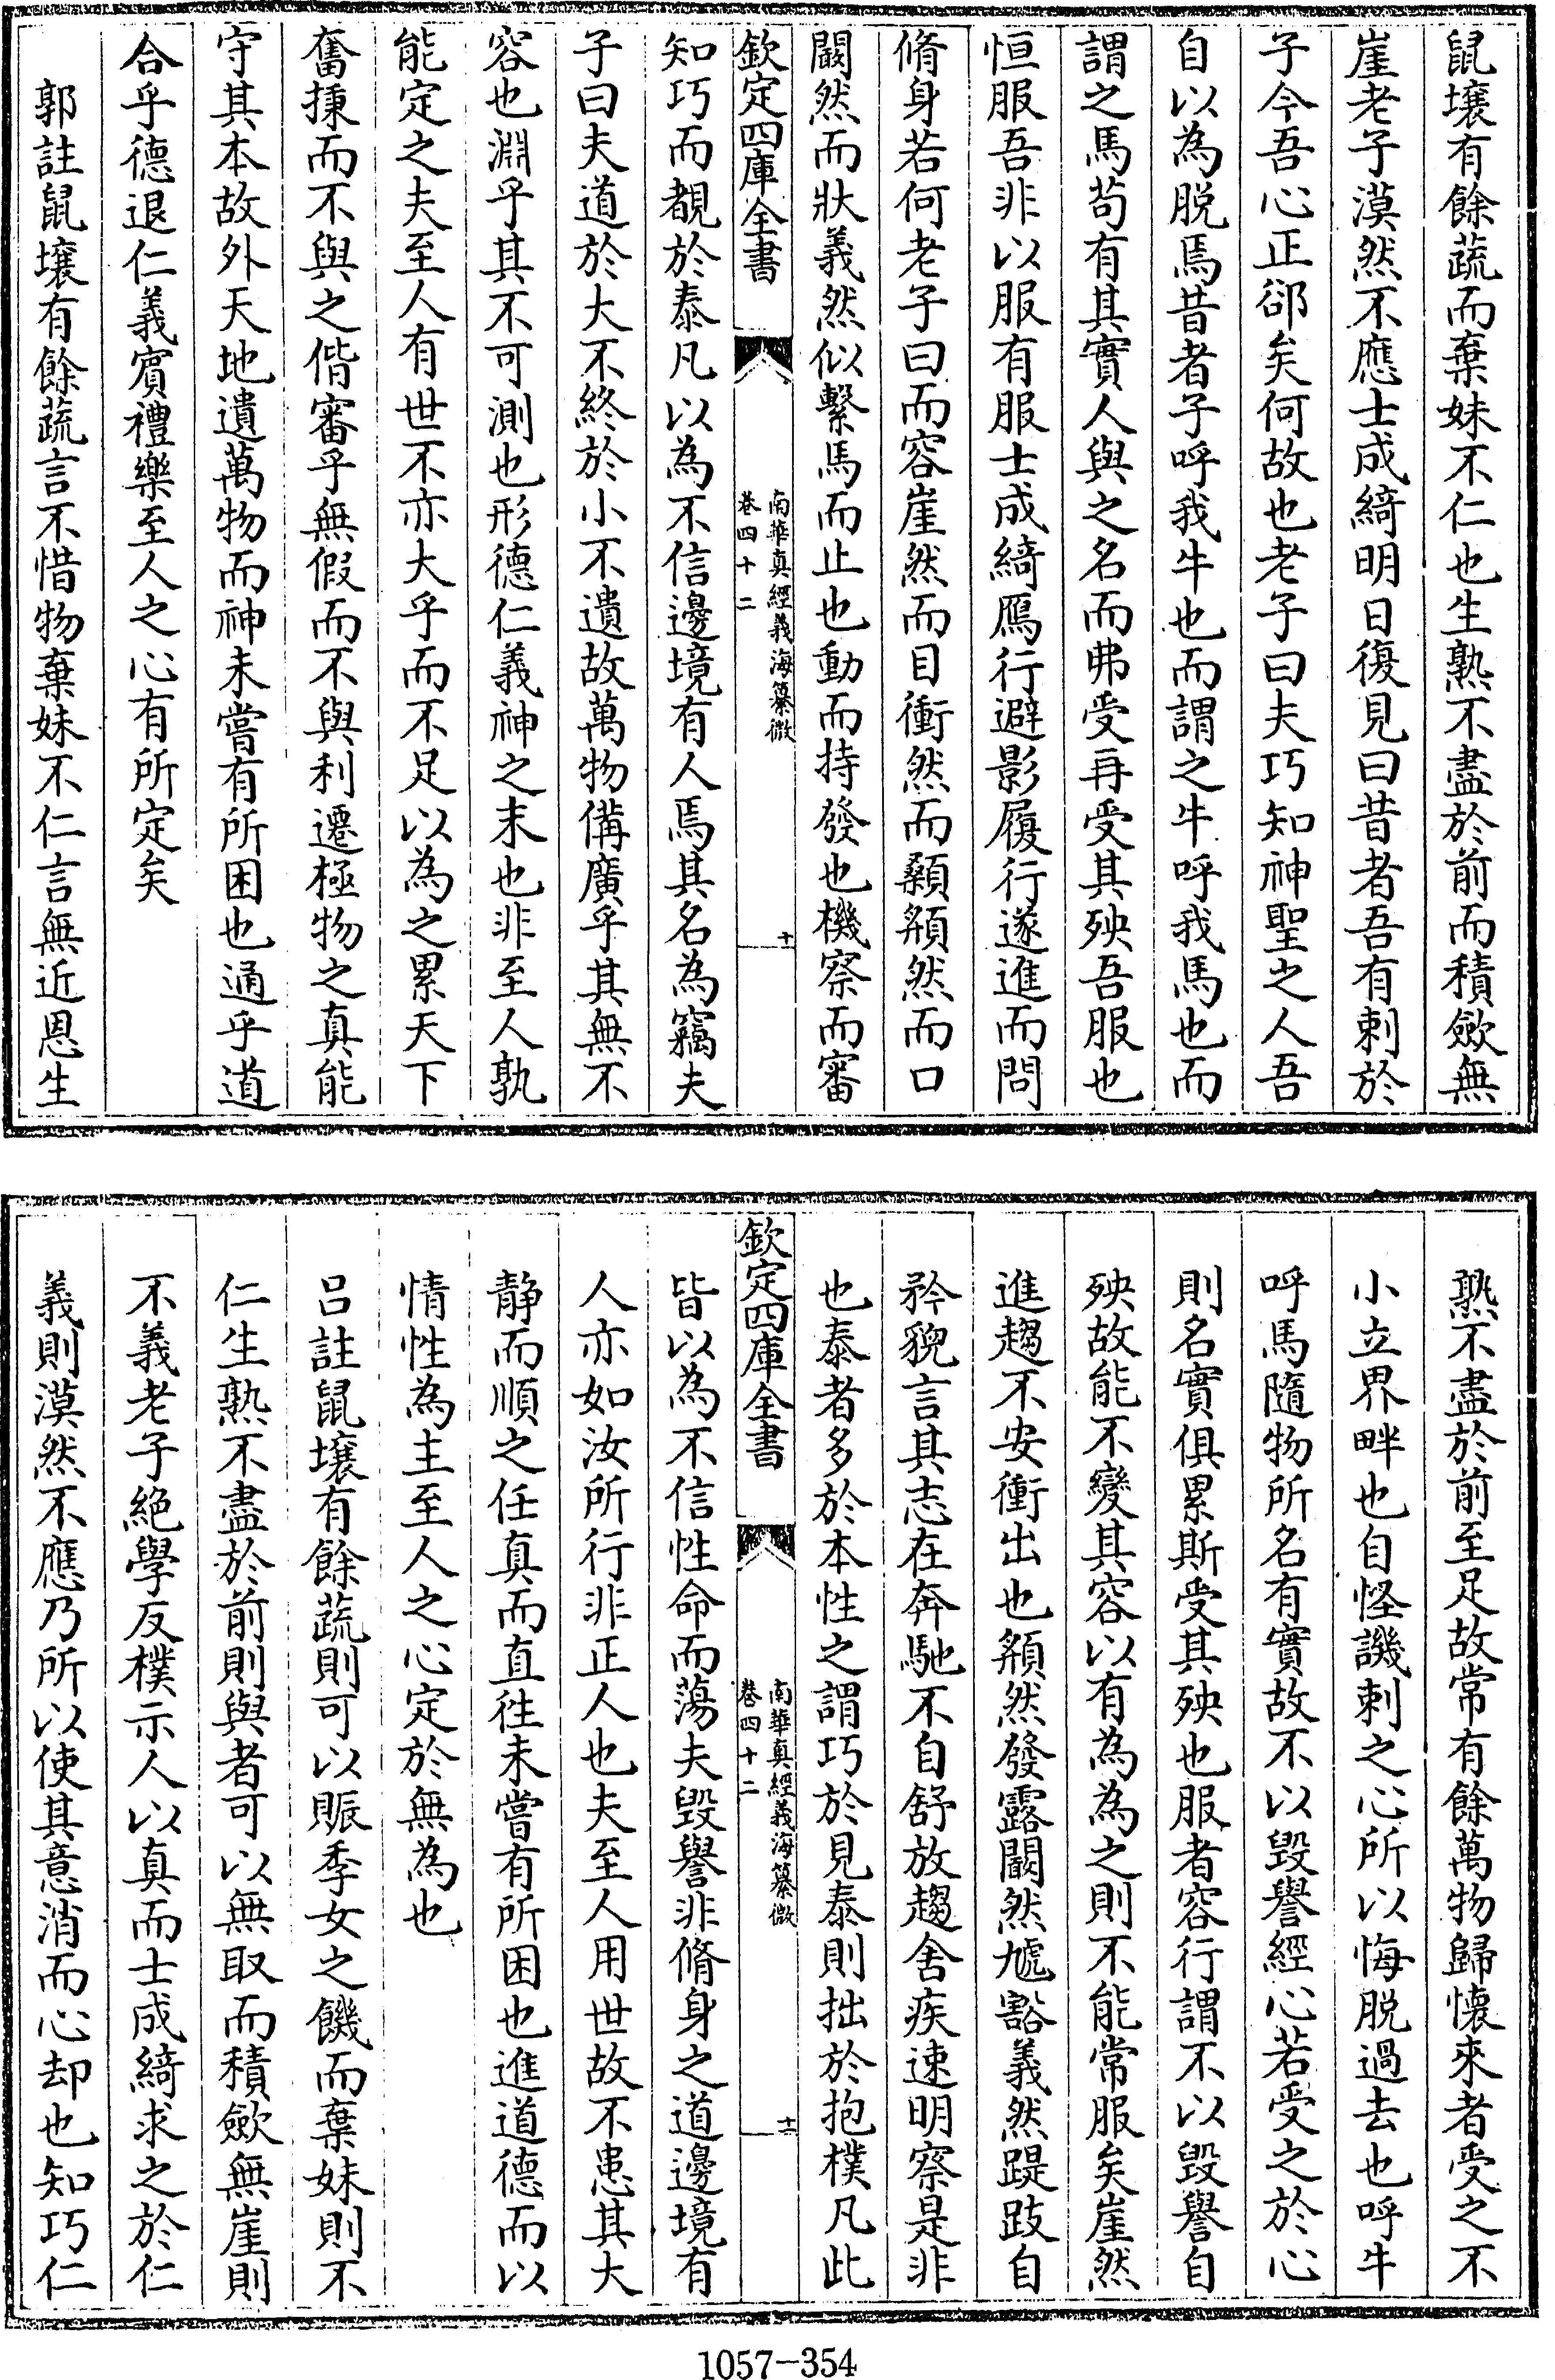 鼠壤有餘蔬而棄妹不仁也生熟不盡於前而積斂無
崖老子漠然不應士成綺明日復見曰昔者吾有刺於
子今吾心正郤矣何故也老子曰夫巧知神聖之人吾
自以為脱焉昔者子呼我牛也而謂之牛呼我馬也而
謂之馬苟有其實人與之名而弗受再受其殃吾服也
恒服吾非以服有服士成綺鴈行避影履行遂進而問
脩身若何老子曰而容崖然而目衝然而顙頯然而口
闞然而狀義然似繫馬而止也動而持發也機察而審
欽定四庫全書
南華真經義海纂微
卷四十二
十一
知巧而覩於泰凡以為不信邊境有人焉其名為竊夫
子曰夫道於大不終於小不遺故萬物備廣乎其無不
容也淵乎其不可測也形德仁義神之末也非至人孰
能定之夫至人有世不亦大乎而不足以為之累天下
奮揀而不與之偕審乎無假而不與利遷極物之真能
守其本故外天地遺萬物而神未嘗有所困也通乎道
合乎德退仁義賓禮樂至人之心有所定矣
郭註鼠壤有餘蔬言不惜物棄妹不仁言無近恩生
熟不盡於前至足故常有餘萬物歸懷來者受之不
小立界畔也自怪譏刺之心所以悔脱過去也呼牛
呼馬隨物所名有實故不以毀譽經心若受之於心
則名實俱累斯受其殃也服者容行謂不以毀譽自
殃故能不變其容以有為為之則不能常服矣崖然
進趨不安衝出也頯然發露闞然虓豁義然踶跂自
矜貌言其志在奔馳不自舒放趨舍疾速明察是非
也泰者多於本性之謂巧於見泰則拙於抱樸凡此
欽定四庫全書
南華真經義海纂微
卷四十二
十二
皆以為不信性命而蕩夫毀譽非脩身之道邊境有
人亦如汝所行非正人也夫至人用世故不患其大
静而順之任真而直徃未嘗有所困也進道德而以
情性為主至人之心定於無為也
吕註鼠壤有餘蔬則可以賑季女之饑而棄妹則不
仁生熟不盡於前則與者可以無取而積斂無崖則
不義老子絶學反樸示人以真而士成綺求之於仁
義則漠然不應乃所以使其意消而心却也知巧仁
1057-354